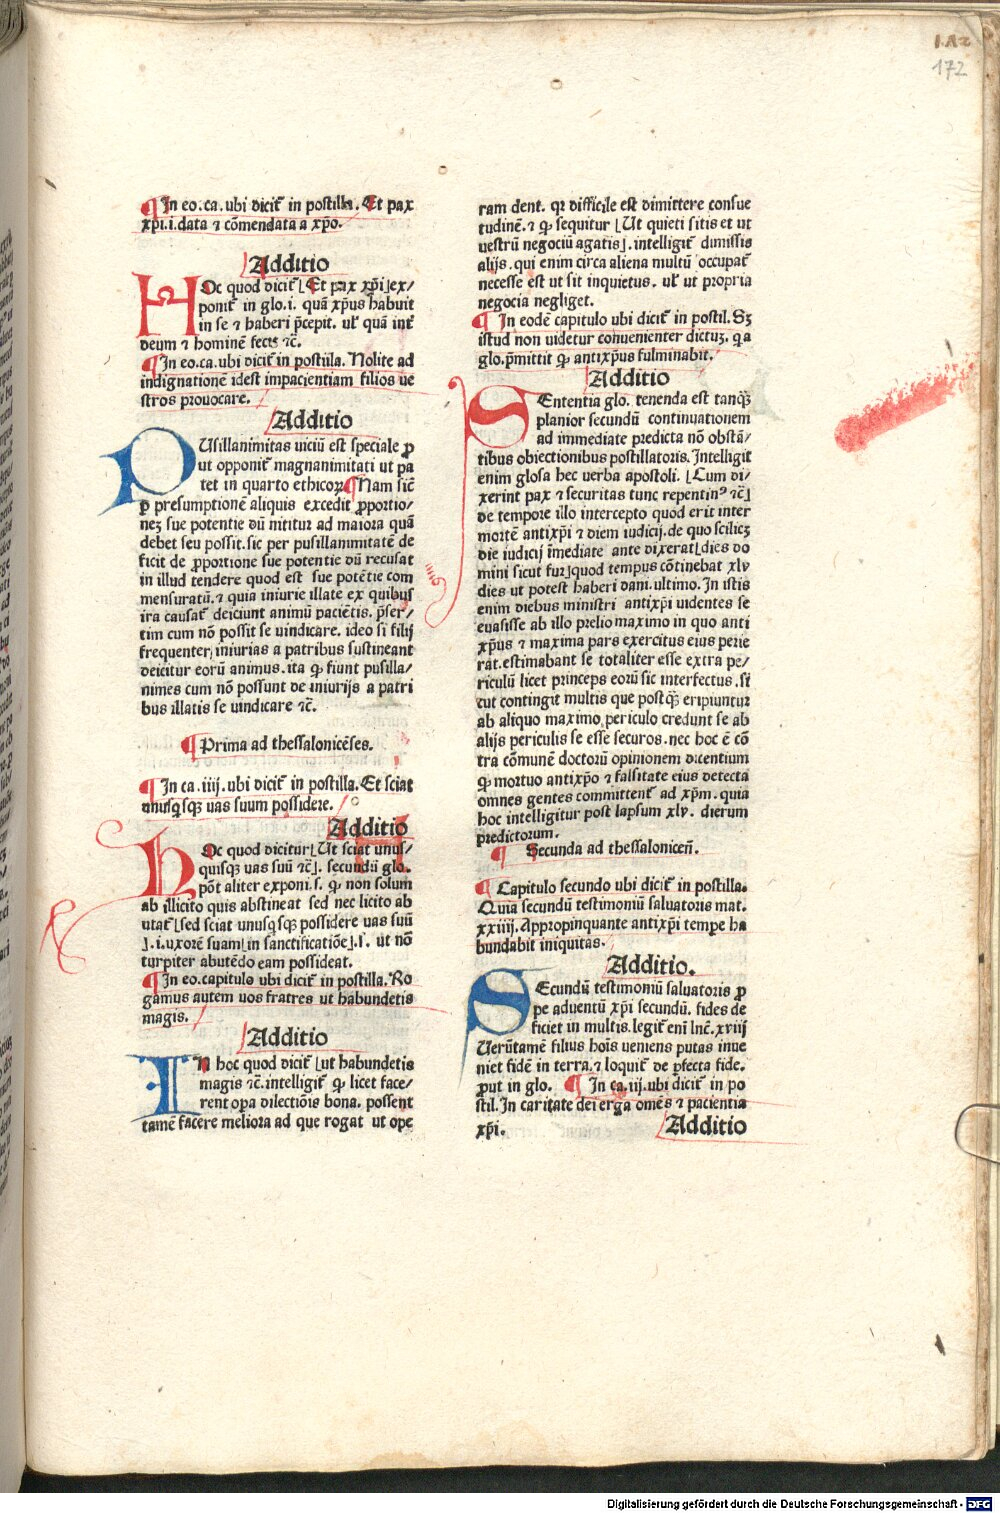 172
¶In eo.ca.ubi dicit᷑ in postilla.Et pax
xp̄i.i.data ⁊ cōmendata a xp̄o.
Additio
HOc quod dicit᷑ ⌊Et pax xp̄i⌋ex/
ponit᷑ in glo.i. quā xp̄us habuit
in se ⁊ haberi p̄cepit. ul̓ quā int᷑
deum ⁊ hominē fecis ⁊c̄.
¶In eo.ca.ubi dicit᷑ in postilla. Nolite ad
indignationē idest impacientiam filios ue
stros prouocare.
Additio
PUsillanimitas uiciū est speciale ꝓ
ut opponit᷑ magnanimitati ut pa
tet in quarto ethicoꝝ¶Nam sic̄
ꝑ presumptionē aliquis excedit ꝓportio/
neꝫ sue potentie dū nititur ad maiora quā
debet seu possit.sic per pusillanimitatē de
ficit de ꝓportione sue potentie dū recusat
in illud tendere quod est sue potētie com
mensuratū.⁊ quia iniurie illate ex quibus
ira causat᷑ deiciunt animū paciētis. p̄ser/
tim cum nō possit se uindicare. ideo si filij
frequenter iniurias a patribus sustineant
deicitur eorū animus.ita ꝙ fiunt pusilla/
nimes cum nō possunt de iniurijs a patri
bus illatis se uindicare ⁊c̄.
¶Prima ad thessalonicēses.
¶In ca.iiij.ubi dicit᷑ in postilla.Et sciat
unusqsqꝫ uas suum possidere.
Additio
hOc quod dicitur⌊Ut sciat unus/
quisqꝫ uas suū ⁊c̄⌋. secundū glo.
pōt aliter exponi.s. ꝙ non solum
ab illicito quis abstineat sed nec licito ab
utat᷑ ⌊sed sciat unusqsqꝫ possidere uas suū
⌋.i.uxorē suam⌊in sanctificatiōe⌋.s. ut nō
turpiter abutēdo eam possideat.
¶In eo.capitulo ubi dicit᷑ in postilla.Ro
gamus autem uos fratres ut habundetis
magis.
Additio
IN hoc quod dicit᷑ ⌊ut habundetis
magis ⁊c̄.intelligit᷑ ꝙ licet face/
rent oꝑa dilectiōis bona. possent
tamē facere meliora ad que rogat ut ope
ram dent. qꝛ difficile est dimittere consue
tudinē.⁊ ꝙ sequitur ⌊Ut quieti sitis et ut
uestrū negociū agatis⌋. intelligit᷑ dimissis
alijs.qui enim circa aliena multū occupat᷑
necesse est ut sit inquietus. ul̓ ut propria
negocia negliget.
¶ In eodē capitulo ubi dicit᷑ in postil.Sꝫ
istud non uidetur conuenienter dictuꝫ. qa
glo.p̄mittit ꝙ antixp̄us fulminabit.
Additio
SEntentia glo. tenenda est tanqꝫ
planior secundū continuationem
ad immediate predicta nō obstā/
tibus obiectionibus postillatoris.Intelligit
enim glosa hec uerba apostoli. ⌊Cum di/
xerint pax ⁊ securitas tunc repentinꝰ ⁊c̄⌋
de tempore illo intercepto quod erit inter
mortē antixp̄i ⁊ diem iudicij.de quo scilicꝫ
die iudicij īmediate ante dixerat⌊dies do
mini sicut fur⌋quod tempus cōtinebat xlv
dies ut potest haberi dani.ultimo.In istis
enim diebus ministri antixp̄i uidentes se
euasisse ab illo prelio maximo in quo anti
xp̄us ⁊ maxima pars exercitus eius perie
rat.estimabant se totaliter esse extra pe/
riculū licet princeps eorū sic interfectus.si
cut contingit multis que postqꝫ eripiuntur
ab aliquo maximo periculo credunt se ab
alijs periculis se esse securos.nec hoc ē cō
tra cōmunē doctorū opinionem dicentium
ꝙ mortuo antixp̄o ⁊ falsitate eius detecta
omnes gentes committent᷑ ad xp̄m. quia
hoc intelligitur post lapsum xlv. dierum
predictorum.
¶ Secunda ad thessalonicen̄.
¶ Capitulo secundo ubi dicit᷑ in postilla.
Quia secundū testimoniū saluatoris mat.
xxiiij.Appropinquante antixp̄i tempe ha
bundabit iniquitas.
Additio.
SEcundū testimoniū saluatoris ꝓ
pe aduentū xp̄i secundū. fides de
ficiet in multis.legit᷑ eni luc̄.xviij
Uerūtamē filius hoīs ueniens putas inue
niet fidē in terra.⁊ loquit᷑ de ꝑfecta fide.
ꝓut in glo. ¶ In ca.iij.ubi dicit᷑ in po
stil.In caritate dei erga omēs ⁊ pacientia
xp̄i.
Additio
Digitalisierung gefördert durch die Deutsche Forschungsgemeinschaft - DFG